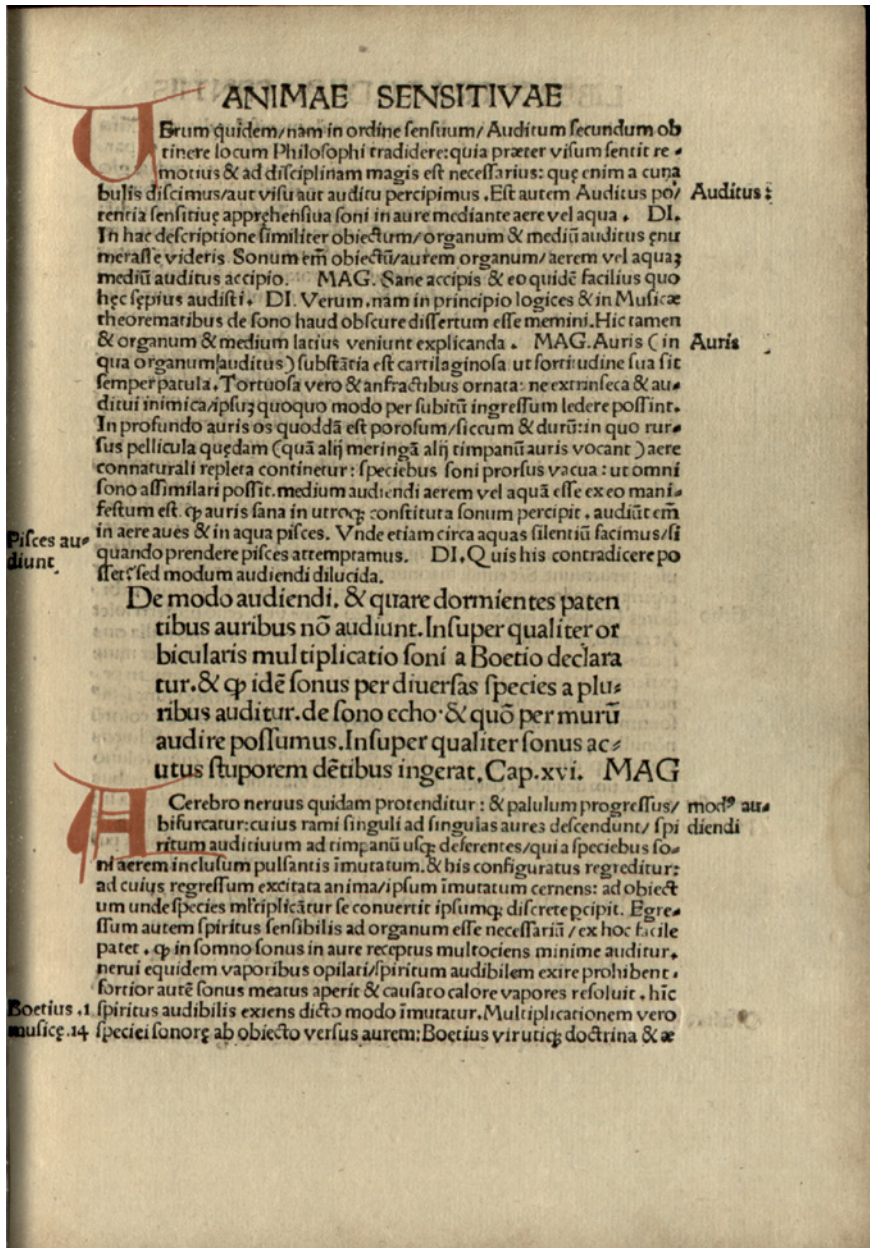 ANIMAE SENSITIVAE
VErum quidem/nam in ordine sensuum/ Auditum secundum ob
tinere locum Philosophi tradidere: quia præter visum sentit re⸗
motius & ad disciplinam magis est necessarius: quę enim a cuna
bulis discimus/aut visu aut auditu percipimus. Est autem Auditus po/ Auditus:
tentia sensitiuę apprehensiua soni in aure mediante aere vel aqua. DI.
In hac descriptione similiter obiectum/organum & mediũ auditus enu
merasse videris. Sonum em̃ obiectũ/aurem organum/aerem vel aquaꝫ
mediũ auditus accipio. MAG. Sane accipis & eo quidẽ facilius quo
hęc sępius audisti. DI. Verum. nam in principio logices & in Musicæ
theorematibus de sono haud obscure dissertum esse memini. Hic tamen
& organum & medium latius veniunt explicanda. MAG. Auris (in Auris
qua organum auditus) substãtia est cartilaginosa ut fortitudine sua sit
semper patula. Tortuosa vero & anfractibus ornata: ne extrinseca & au⸗
ditui inimica/ipsuꝫ quoquo modo per subitũ ingressum ledere possint.
In profundo auris os quoddã est porosum/siccum & durũ: in quo rur⸗
sus pellicula quędam (quã alij meringã alij timpanũ auris vocant) aere
connaturali repleta continetur: speciebus soni prorsus vacua: ut omni
sono assimilari possit. medium audiendi aerem vel aquã esse ex eo mani⸗
festum est. ꝙ auris sana in utroqꝫ constituta sonum percipit. audiũt em̃
in aere aues & in aqua pisces. Vnde etiam circa aquas silentiũ facimus/si
Pisces au⸗
diunt.
quando prendere pisces attemptamus. DI. Quis his contradicere po
sset: sed modum audiendi dilucida.
De modo audiendi. & quare dormientes paten
tibus auribus nõ audiunt. Insuper qualiter or
bicularis multiplicatio soni a Boetio declara
tur. & ꝙ idẽ sonus per diuersas species a plu⸗
ribus auditur. de sono echo· & quõ per murũ
audire possumus. Insuper qualiter sonus ac⸗
utus stuporem dẽtibus ingerat. Cap. xvi. MAG
A Cerebro neruus quidam protenditur: & palulum progressus/ modꝰ au⸗
bifurcatur: cuius rami singuli ad singulas aures descendunt/ spi diendi
ritum auditiuum ad timpanũ usqꝫ deferentes/qui a speciebus so⸗
ni aerem inclusum pulsantis ĩmutatum. & his configuratus regreditur:
ad cuius regressum excitata anima/ipsum ĩmutatum cernens: ad obiect
um unde species ml̃tiplicãtur se conuertit ipsumqꝫ discrete ꝑcipit. Egre⸗
ssum autem spiritus sensibilis ad organum esse necessariũ/ex hoc facile
patet. ꝙ in somno sonus in aure receptus multociens minime auditur.
nerui equidem vaporibus opilati/spiritum audibilem exire prohibent.
fortior autẽ sonus meatus aperit & causato calore vapores resoluit. hĩc
Boetius .1 spiritus audibilis exiens dicto modo ĩmutatur. Multiplicationem vero
musicę. 14 speciei sonorę ab obiecto versus aurem: Boetius virutiqꝫ doctrina & æ